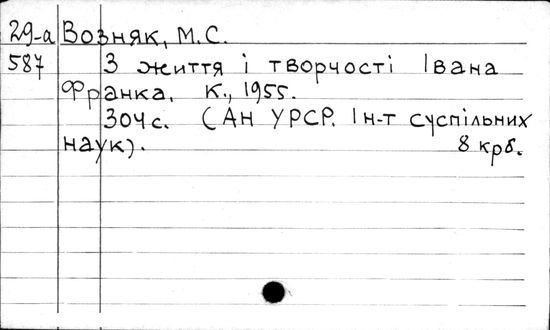 29-а Возняк, М.С.
587 З життя і творчості Івана
Франка. К., 1955.
304 с. (АН УРСР. Ін-т суспільних
наук). 8 крб.